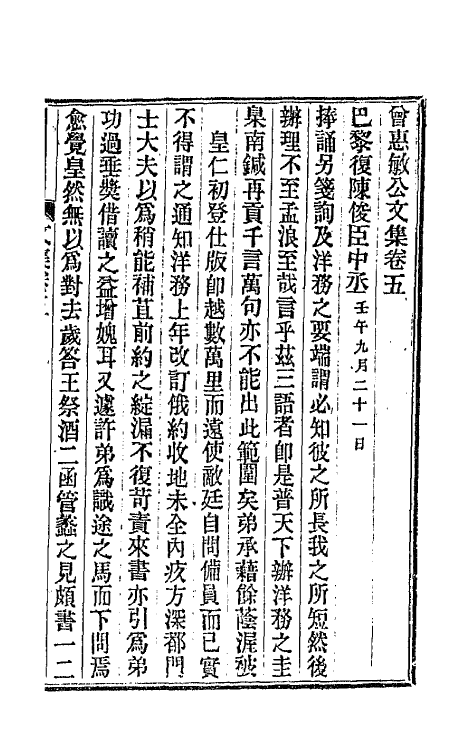 曾惠敏公文集卷五
巴黎復陳俊臣中丞壬午九月二十一日
捧誦另箋詢及洋務之要端謂必知彼之所長我之所短然後
辦理不至孟浪至哉言乎茲三語者卽是普天下辦洋務之圭
臬南鍼再貢千言萬句亦不能出此範圍矣弟承藉餘蔭渥被
皇仁初登仕版卽越數萬里而遠使敵廷自問備員而已實
不得謂之通知洋務上年改訂俄約收地未全內疚方深都門
士大夫以爲稍能補苴前約之綻漏不復苛責來書亦引爲弟
功過垂獎借讀之益增媿耳又遽許弟爲識途之馬而下問焉
愈覺皇然無以爲對去歲答王祭酒二函管蠡之見頗書一二